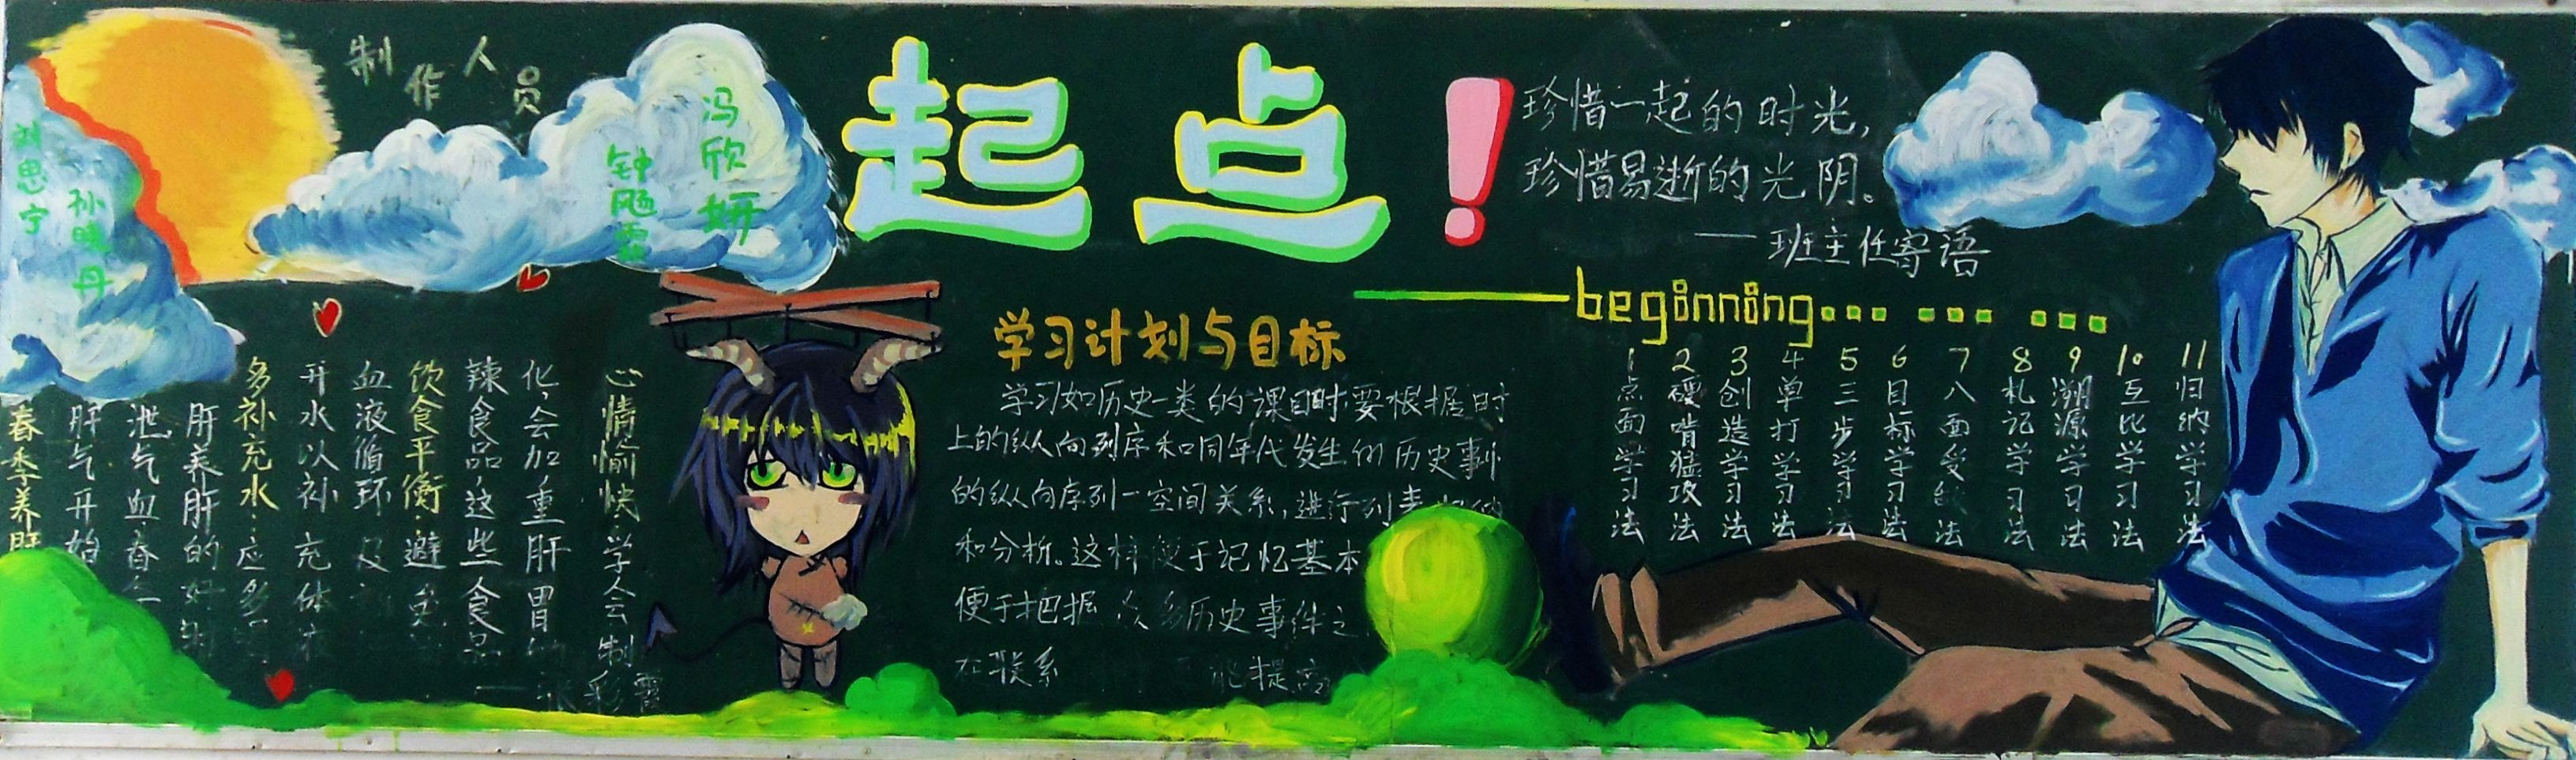 制作人员
刘思宁
孙晓丹
钟飏雪
冯欣妍
起点！
珍惜一起的时光，
珍惜易逝的光阴。
——班主任寄语
beginning... ... ...
春季养肝
肝气开始
泄气血.春生
肝.养肝的好
多补充水:应多
开水以补充体
血液循环及
饮食平衡:避免
辣食品,这些食品
化,会加重肝胃的
心情愉快:学会制
学习计划与目标
学习如历史一类的课目时,要根据时
上的纵向列序和同年代发生的历史事件
的纵向序列一空间关系,进行列表
和分析。这样便于记忆基本
便于把握众多历史事件之
在联系
能提高
1点面学习法
2硬啃猛攻法
3创造学习法
4单打学习法
5三步学习法
6目标学习法
7八面受敌法
8札记学习法
9溯源学习法
10互比学习法
11归纳学习法